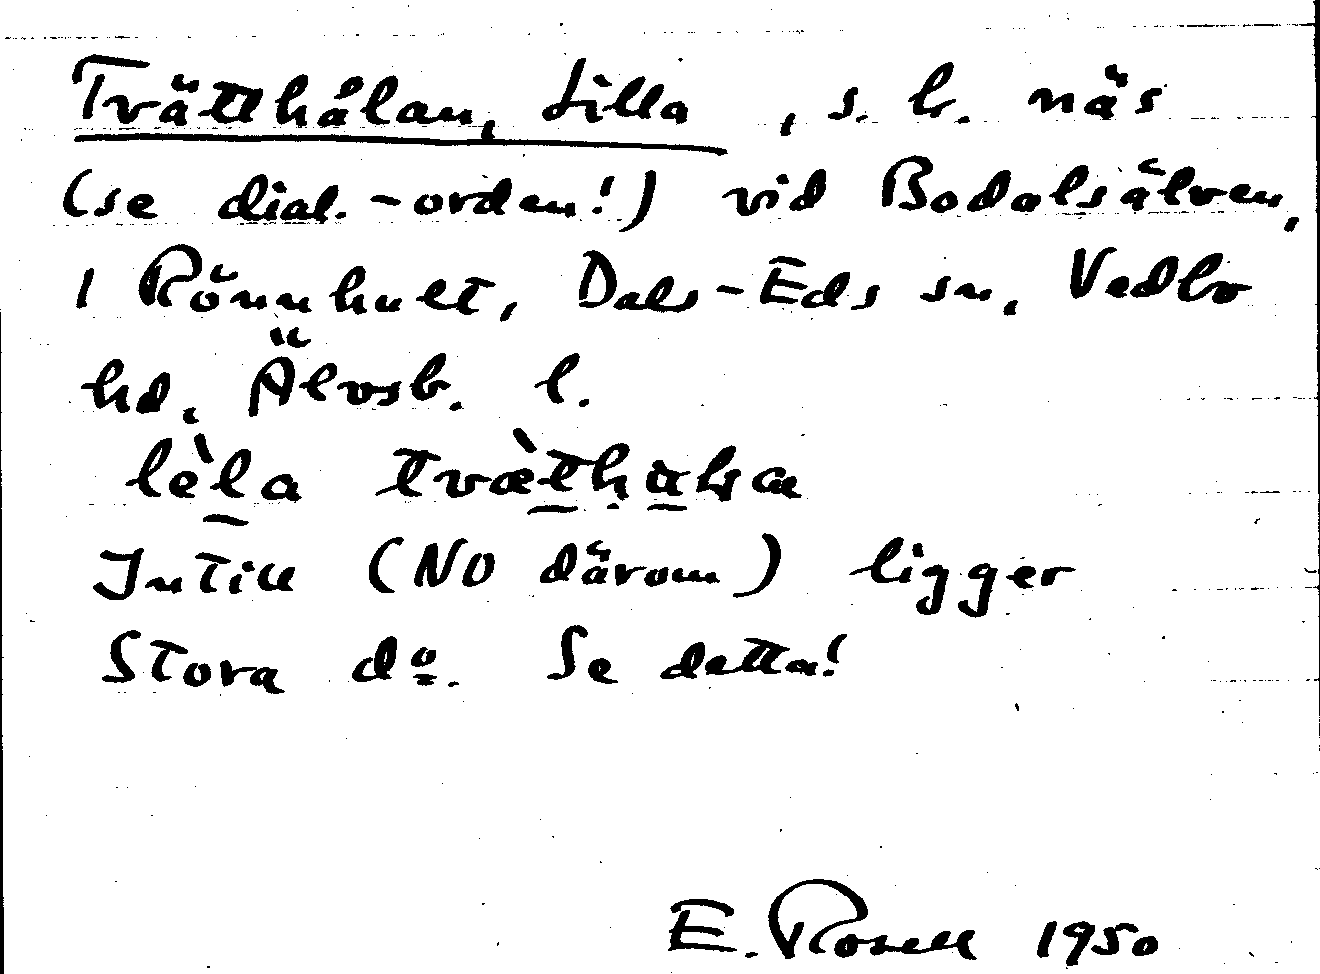 Tvätthålan, Lilla, s. k. näs
(se dial.-orden!) vid Bodalsälven,
i Rönnhult, Dals-Eds sn, Vedbo
hd, Älvsb. l.
lèla tvæ̀thɑlsa
Intill (NO därom) ligger
Stora dº. Se detta!
E. Rosell 1950